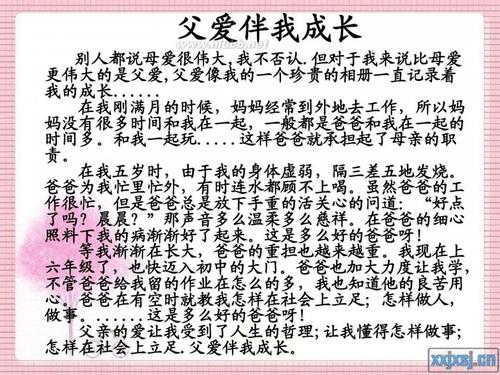 父爱伴我成长
别人都说母爱很伟大,我不否认.但对于我来说比母爱
更伟大的是父爱,父爱像我的一个珍贵的相册一直记录着
我的成长......
在我刚满月的时候，妈妈经常到外地去工作，所以妈
妈没有很多时间和我在一起，一般都是爸爸和我在一起的
时间多。和我一起玩.....这样爸爸就承担起了母亲的职
责。
在我五岁时，由于我的身体虚弱，隔三差五地发烧。
爸爸为我忙里忙外，有时连水都顾不上喝。虽然爸爸的工
作很忙，但是爸爸总是放下手重的活关心的问道：“好点
了吗？晨晨？”那声音多么温柔多么慈祥。在爸爸的细心
照料下我的病渐渐好了起来。这是多么好的爸爸呀！
等我渐渐在长大，爸爸的重担也越来越重。我现在上
六年级了，也快迈入初中的大门。爸爸也加大力度让我学，
不管爸爸给我留的作业在怎么的多，我也知道他的良苦用
心。爸爸在有空时就教我怎样在社会上立足；怎样做人，
做事。.....这是多么好的爸爸呀！
父亲的爱让我受到了人生的哲理；让我懂得怎样做事；
怎样在社会上立足.父爱伴我成长。
xxjxsj.cn